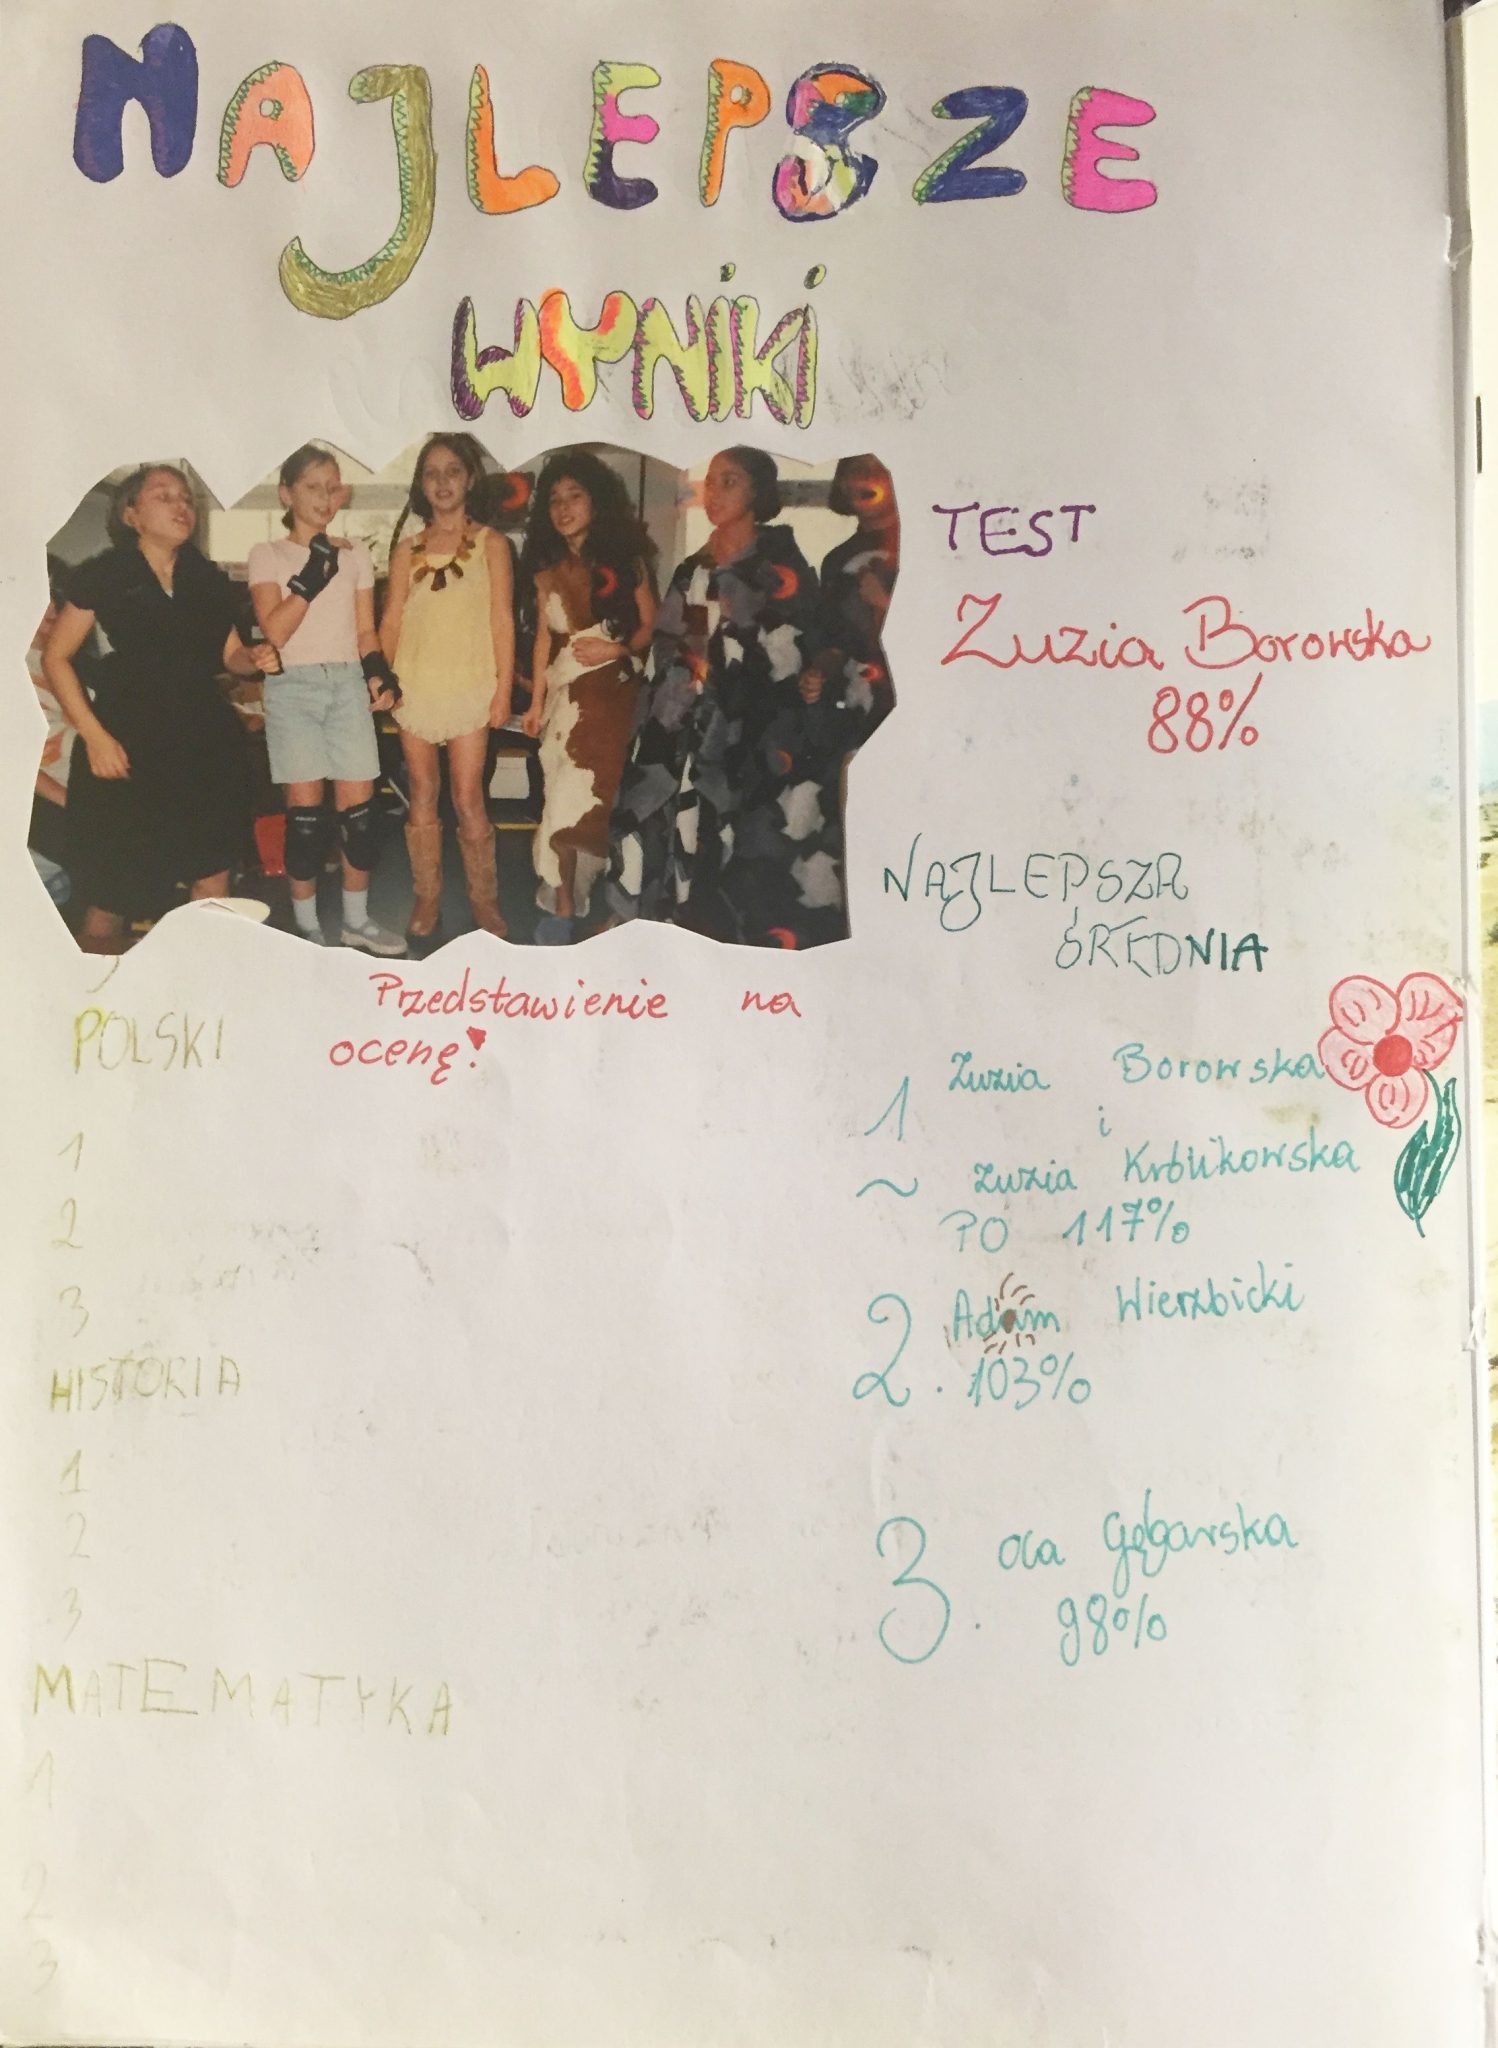 NAJLEPSZE
WYNiKi
TEST
Zuzia Borowska
88%
NAJLEPSZA
ŚREDNIA
Przedstawienie na
ocenę!
POLSKI
1
2
3
HISTORIA
1
2
3
MATEMATYKA
1
2
3
1 Zuzia Borowska
i
~ Zuzia Królikowska
PO 117%
2. Adam Wierzbicki
103%
3. Ola Gębarska
98%